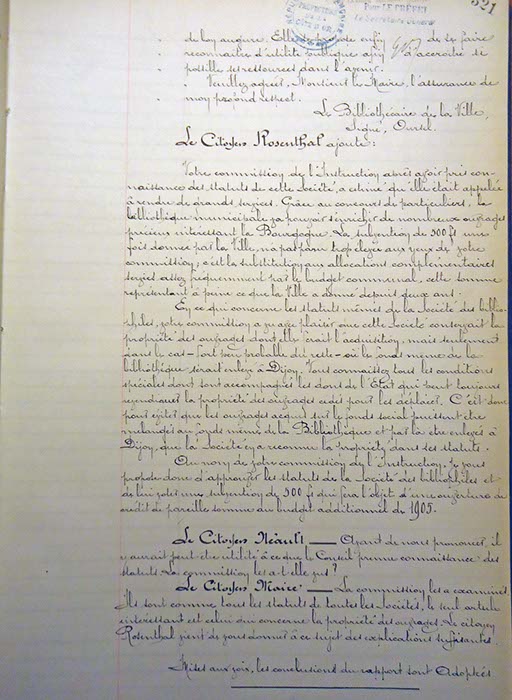 321
Pour LE PRÉFET
Le Secrétaire Général
de bon augure. Elle se propose enfin de se faire
reconnaître d'utilité publique afin d'accroître si
possible ses ressources dans l'avenir.
Veuillez agréer, Monsieur le Maire, l'assurance de
mon profond respect.
Le Bibliothécaire de la Ville,
Signé, Oursel.
Le Citoyen Rosenthal ajoute:
Votre commission de l'Instruction après avoir pris con-
naissance des statuts de cette Société, a estimé qu'elle était appelée
à rendre de grands services. Grâce au concours de particuliers, la
bibliothèque municipale va pouvoir s'enrichir de nombreux ouvrages
précieux intéressant la Bourgogne. La subvention de 500 fs une
fois donnée par la Ville, n'a paru trop élevée aux yeux de votre
commission; c'est la substitution aux allocations complémentaires
servies assez fréquemment par le budget communal, cette somme
représentant à peine ce que la Ville a donné depuis deux ans.
En ce qui concerne les statuts mêmes de la Société des biblio-
philes, votre commission a vu avec plaisir que cette Société conservait la
propriété des ouvrages dont elle ferait l'acquisition, mais seulement
dans le cas - fort peu probable du reste - où le fonds même de la
bibliothèque serait enlevé à Dijon. Vous connaissez tous les conditions
spéciales dont sont accompagnés les dons de l'Etat qui veut toujours
revendiquer la propriété des ouvrages cédés pour les déplacer. C'est donc
pour éviter que les ouvrages acquis sur le fonds social puissent être
mélangés au fonds même de la Bibliothèque et par là être enlevés à
Dijon, que la Société s'en reconnaît la propriété dans ses statuts.
Au nom de votre commission de l'Instruction, je vous
propose donc d'approuver les statuts de la Société des bibliophiles et
de lui voter une subvention de 500 fs qui fera l'objet d'une ouverture de
crédit de pareille somme au budget additionnel de 1905.
Le Citoyen Néault — Avant de nous prononcer, il
y aurait peut-être utilité à ce que le Conseil prenne connaissance des
statuts. La commission les a-t-elle vus?
Le Citoyen Maire — La commission les a examinés
Ils sont comme tous les statuts de toutes les Sociétés, le seul article
intéressant est celui qui concerne la propriété des ouvrages. Le citoyen
Rosenthal vient de vous donner à ce sujet des explications suffisantes.
Mises aux voix, les conclusions du rapport sont Adoptées